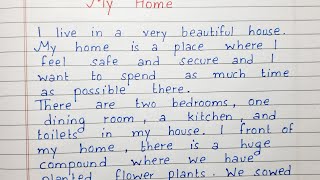 My Home
I live in a very beautiful house.
My home is a place where I
feel safe and secure and I
want to spend as much time
as possible there.
There are two bedrooms, one
dining room, a kitchen, and
toilets in my house. I front of
my home, there is a huge
compound where we have
planted flower plants. We sowed